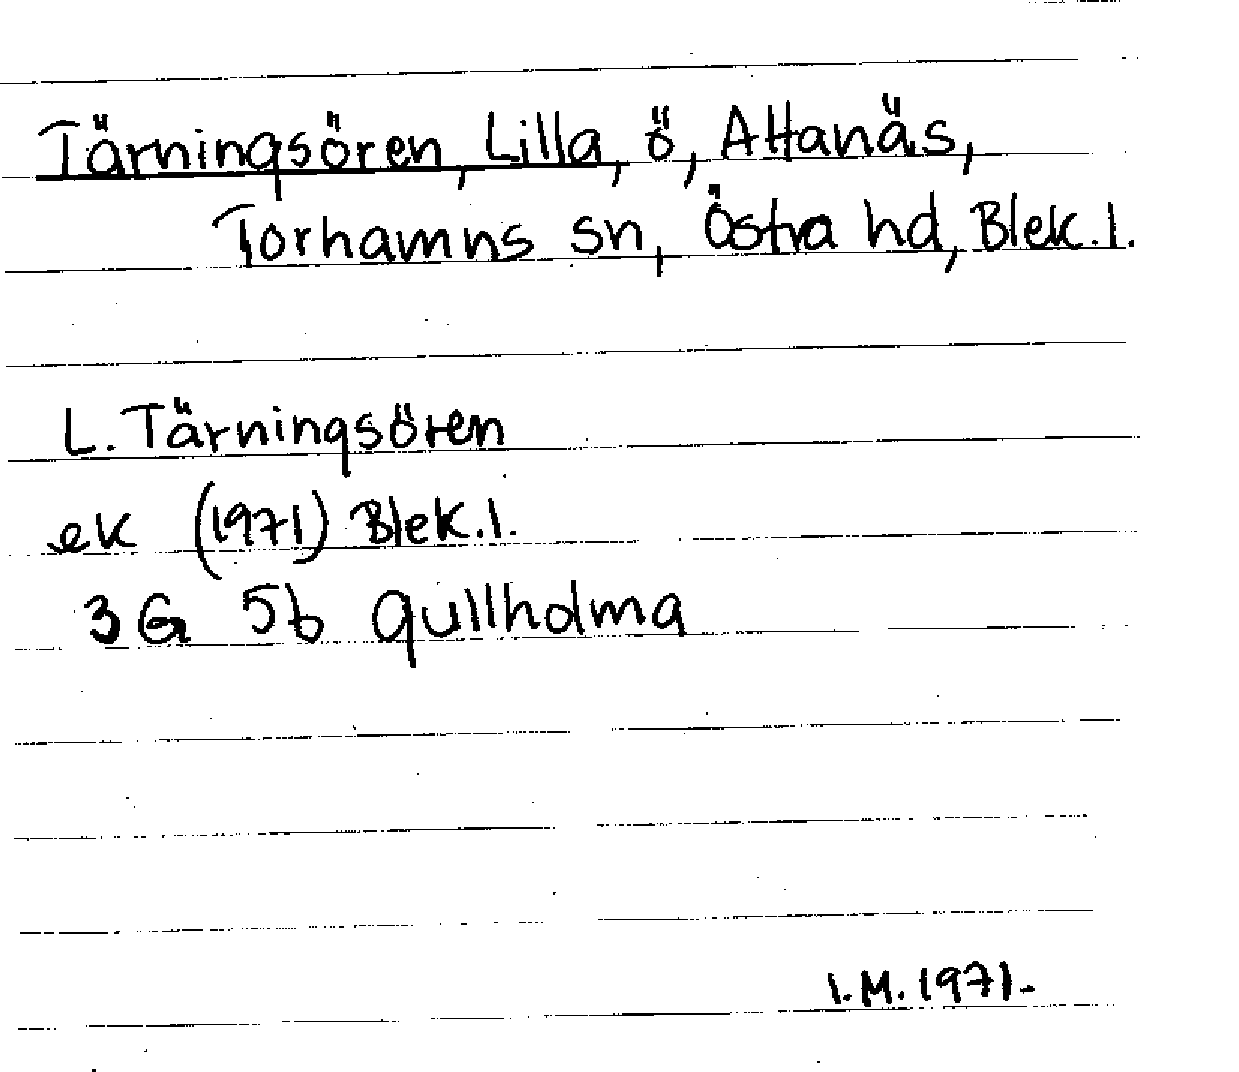 Tärningsören, Lilla, ö, Attanäs,
Torhamns sn, Östra hd, Blek. l.
L. Tärningsören
ek (1971) Blek. l.
3 G 5b Gullholma
I. M. 1971.